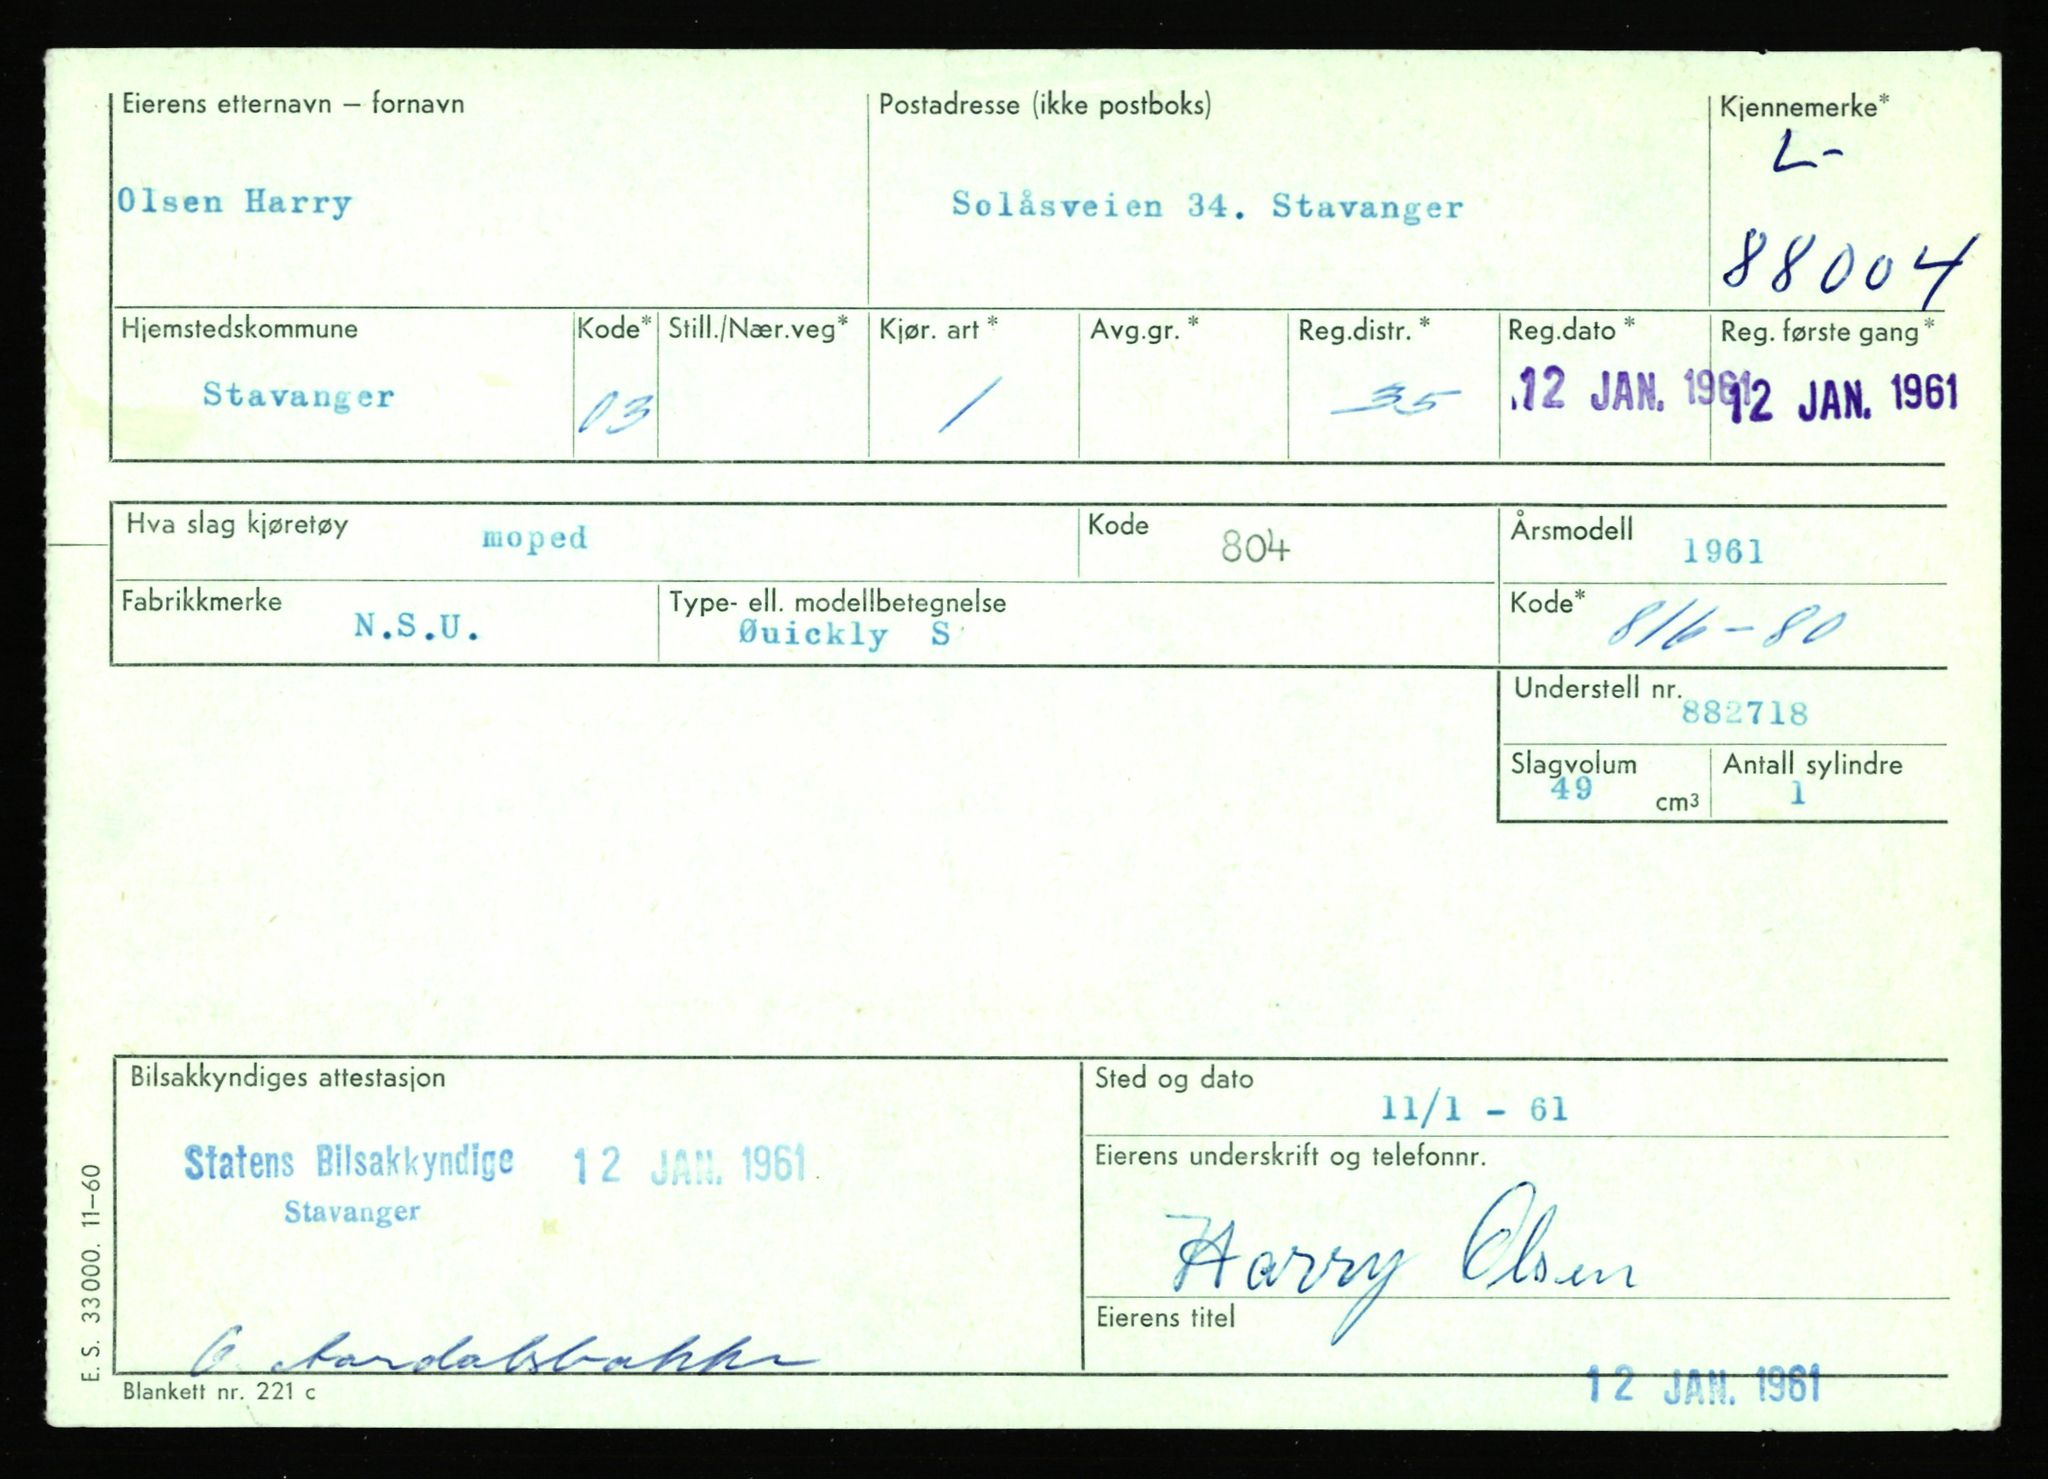 Eierens etternavn – fornavn
Postadresse (ikke postboks)
Kjennemerke*
L-
Olsen Harry
Solåsveien 34. Stavanger
88004
Hjemstedskommune
Kode*
Still./Nær.veg*
Kjør. art *
Avg.gr. *
Reg.distr. *
Reg.dato *
Reg. første gang *
Stavanger
03
1
35
12 JAN. 1961
12 JAN. 1961
Hva slag kjøretøy
moped
Kode
804
Årsmodell
1961
Fabrikkmerke
N.S.U.
Type- ell. modellbetegnelse
Øuickly S
Kode*
816-80
Understell nr.
882718
Slagvolum
49 cm3
Antall sylindre
1
Bilsakkyndiges attestasjon
Sted og dato
11/1 - 61
Statens Bilsakkyndige 12 JAN. 1961
Stavanger
Eierens underskrift og telefonnr.
Harry Olsen
Eierens titel
12 JAN. 1961
Blankett nr. 221 c
E. S. 33000. 11–60